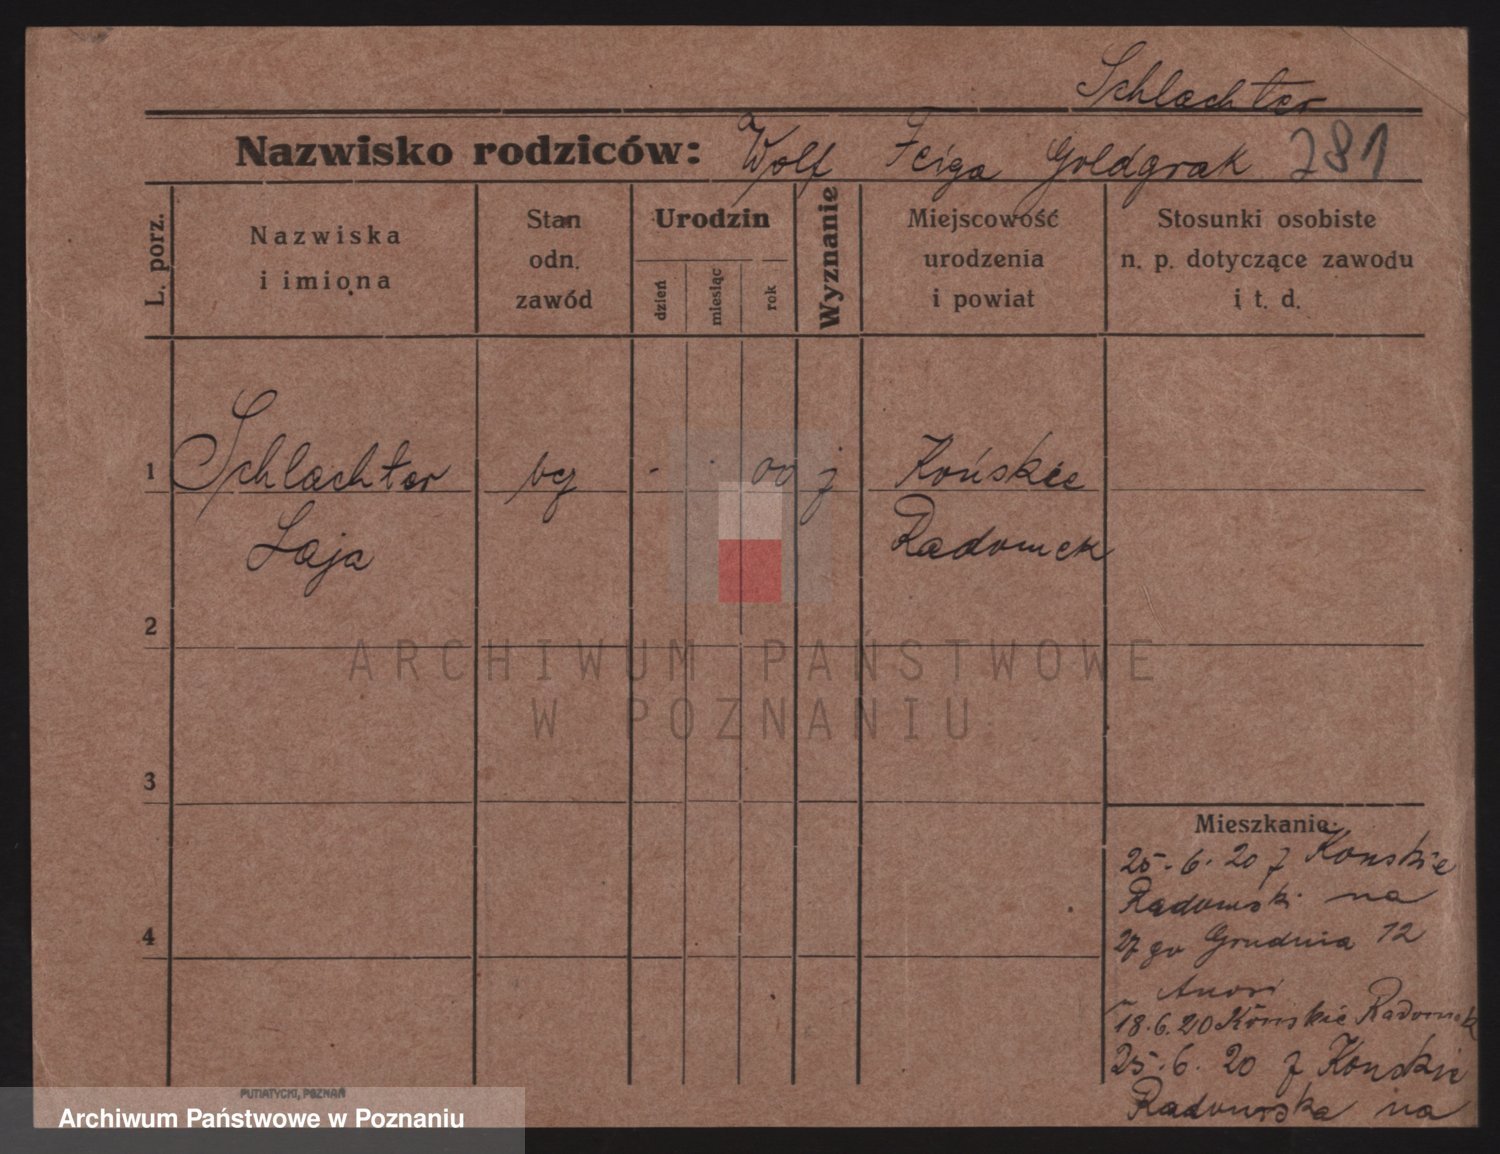 Schlachter
Nazwisko rodziców: Wolf Feiga Goldgrak 281
L. porz.
Nazwiska
i imiona
Stan
odn.
zawód
Urodzin
dzień
miesiąc
rok
Wyznanie
Miejscowość
urodzenia
i powiat
Stosunki osobiste
n. p. dotyczące zawodu
i t. d.
1 Schlachter - . 00 j Końskie
Laja Radomek
2
3
4
Mieszkanie:
25.6.20 z Konskie
Radomski na
27 go Grudnia 12
18.6.20 Końskie
25.6.20 z Konskie
Radomska na
PUTIATYCKI, POZNAŃ
ARCHIWUM PAŃSTWOWE
W POZNANIU
Archiwum Państwowe w Poznaniu